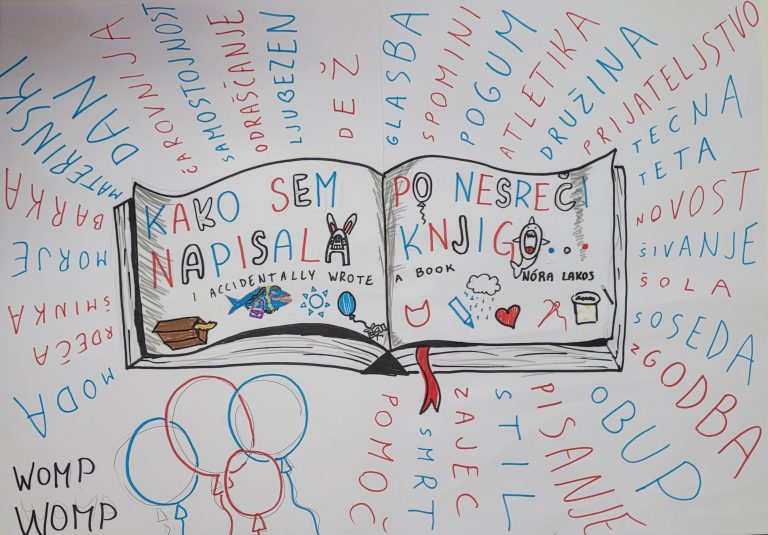 MATERINSKI
DAN
ČAROVNIJA
SAMOSTOJNOST
ODRAŠČANJE
LJUBEZEN
DEŽ
GLASBA
SPOMINI
POGUM
ATLETIKA
DRUŽINA
PRIJATELJSTVO
TEČNA
TETA
NOVOST
ŠIVANJE
ŠOLA
SOSEDA
ZGODBA
OBUP
PISANJE
STIL
ZAJEC
SMRT
POMOČ
BARKA
MORJE
ŠMINKA
RDEČA
MODA
KAKO SEM
NAPISALA
I ACCIDENTALLY WROTE
PO NESREČI
KNJIGO...
A BOOK
NÓRA LAKOS
WOMP
WOMP